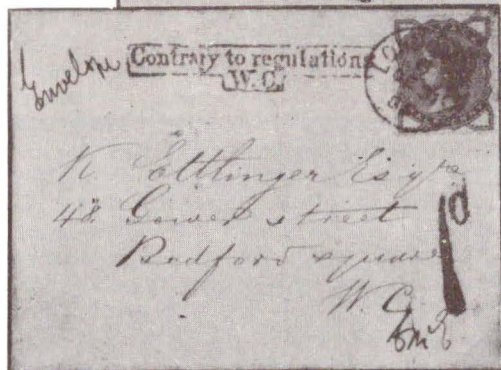 Envelope
Contrary to regulations
W.C.
K Ettlinger Esqre
48 Gower street
Bedford square
W.C.
1d